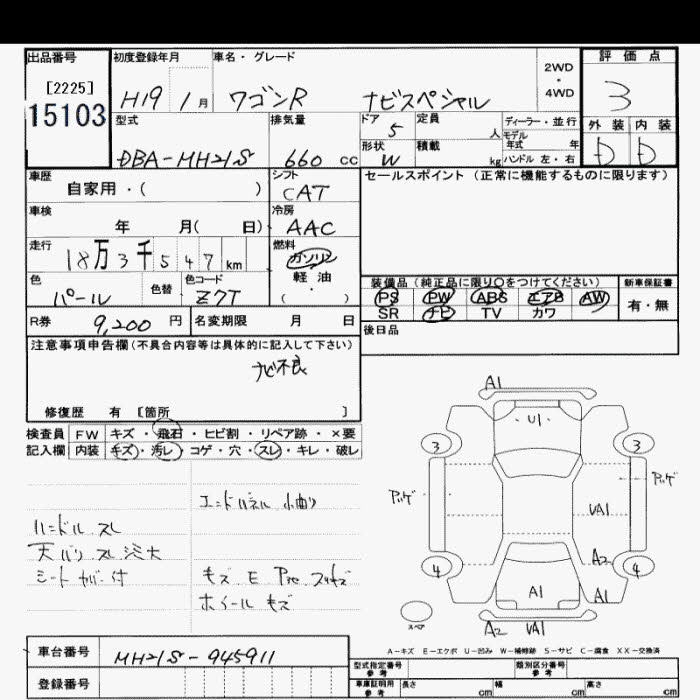 出品番号 初度登録年月 車名・グレード 2WD・4WD 評価点
[2225] H19 1月 ワゴンR ナビスペシャル 3
15103 型式 排気量 ドア 定員 ディーラー・並行 外装 内装
DBA-MH21S 660 cc 5 人 モデル年式 年 D D
形状 積載 kg ハンドル 左・右
W
車歴 シフト セールスポイント (正常に機能するものに限ります)
自家用・( ) CAT
車検 冷房
年 月( 日) AAC
走行 燃料
18万3千547km ガソリン
軽油
・
( )
色 色替 色コード 装備品 (純正品に限り○をつけてください) 新車保証書
パール Z7T PS PW ABS エアB AW 有・無
SR ナビ TV カワ
R券 9,200円 名変期限 月 日 後日品
注意事項申告欄(不具合内容等は具体的に記入して下さい)
ナビ不良
修復歴 有 [箇所 ]
検査員 FW キズ・飛石・ヒビ割・リペア跡・×要
記入欄 内装 キズ・汚レ・コゲ・穴・スレ・キレ・破レ
エンドパネル 小曲り
ハンドル スレ
天バリ スレ シミ大
シート カバー付
キズ E
ホイール キズ
A1
U1
3 3
VA1
A2
4 4
A1 A1
スペア
A2 VA1
A-キズ E-エクボ U-凹み W-補修跡 S-サビ C-腐食 XX-交換済
車台番号 MH21S-945911
登録番号
型式指定番号 参考 類別区分番号 参考
車庫証明用 参考 長さ cm 幅 cm 高さ cm